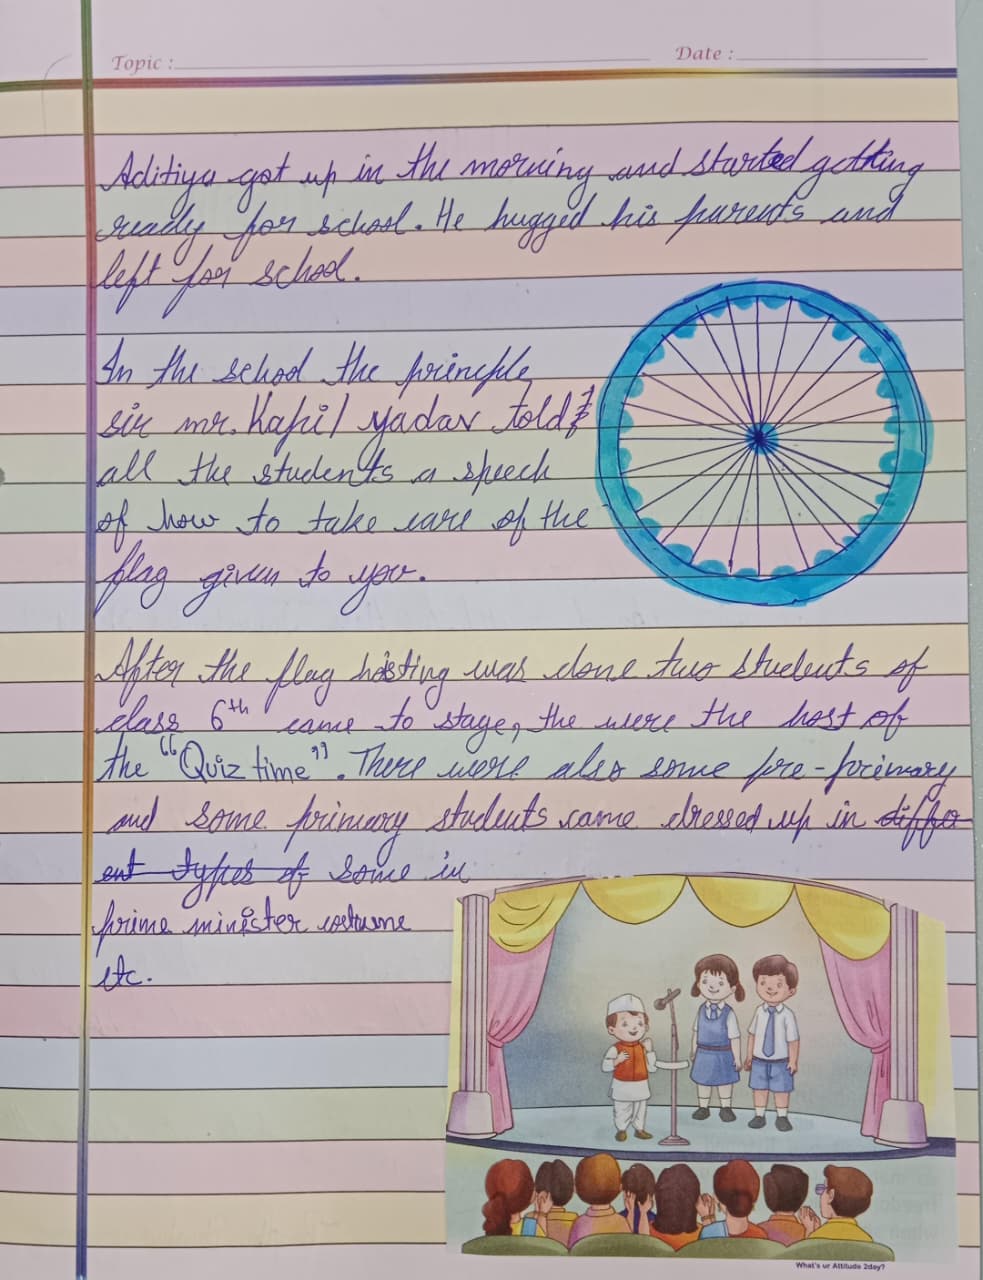 Topic :
Date :
Aditiya got up in the morning and started getting
ready for school. He hugged his parents and
left for school.
In the school the principle
sir mr. Kapil yadav told
all the students a speech
of how to take care of the
flag given to you.
After the flag hoisting was done two students of
class 6th came to stage, the were the host of
the "Quiz time". There were also some pre-primary
and some primary students came dressed up in diffo
ent types of some in
prime minister costume
etc.
What's ur Attitude 2day?